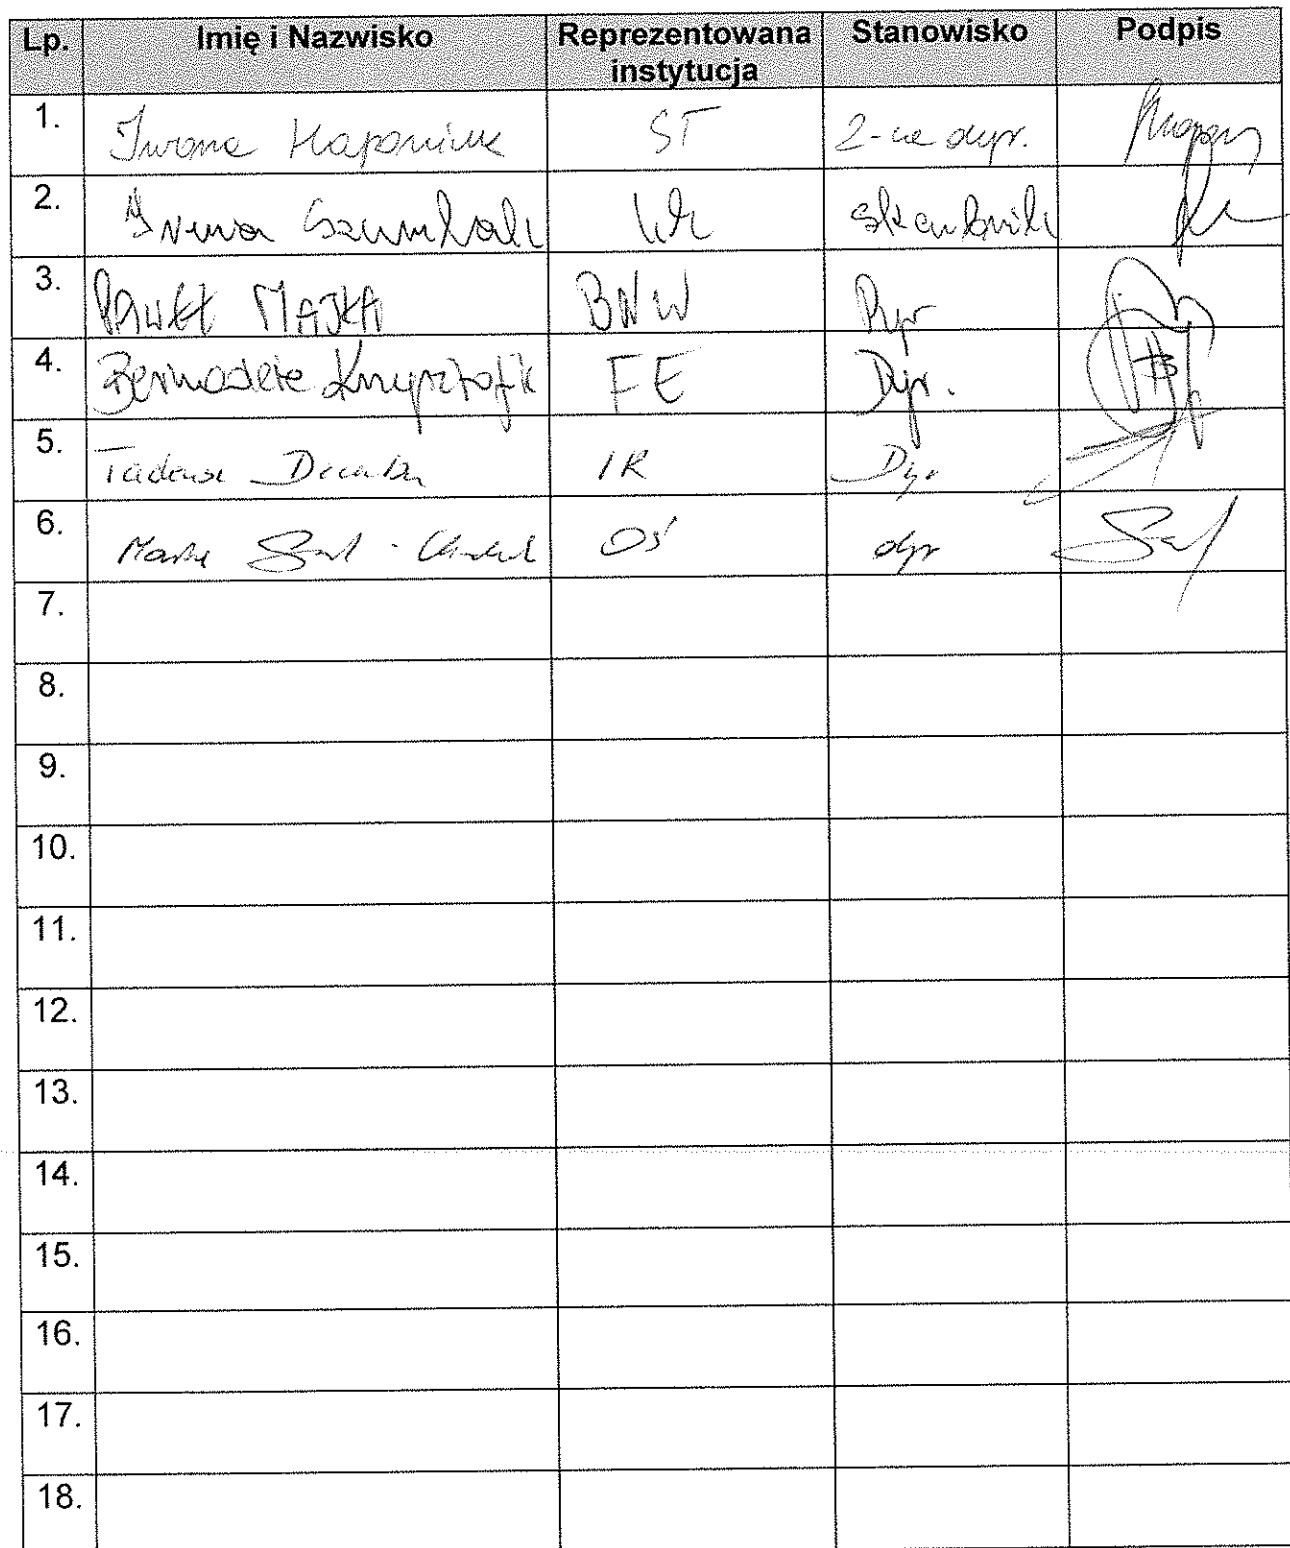 Lp. Imię i Nazwisko Reprezentowana instytucja Stanowisko Podpis
1. Iwona Haponiuk ST Z-ca dyr.
2. skarbnik
3. PAWEŁ MAJKA BNW Dyr
4. Bernadeta Knysztofik FE Dyr.
5. Tadeusz IR Dyr
6. OŚ dyr
7.
8.
9.
10.
11.
12.
13.
14.
15.
16.
17.
18.